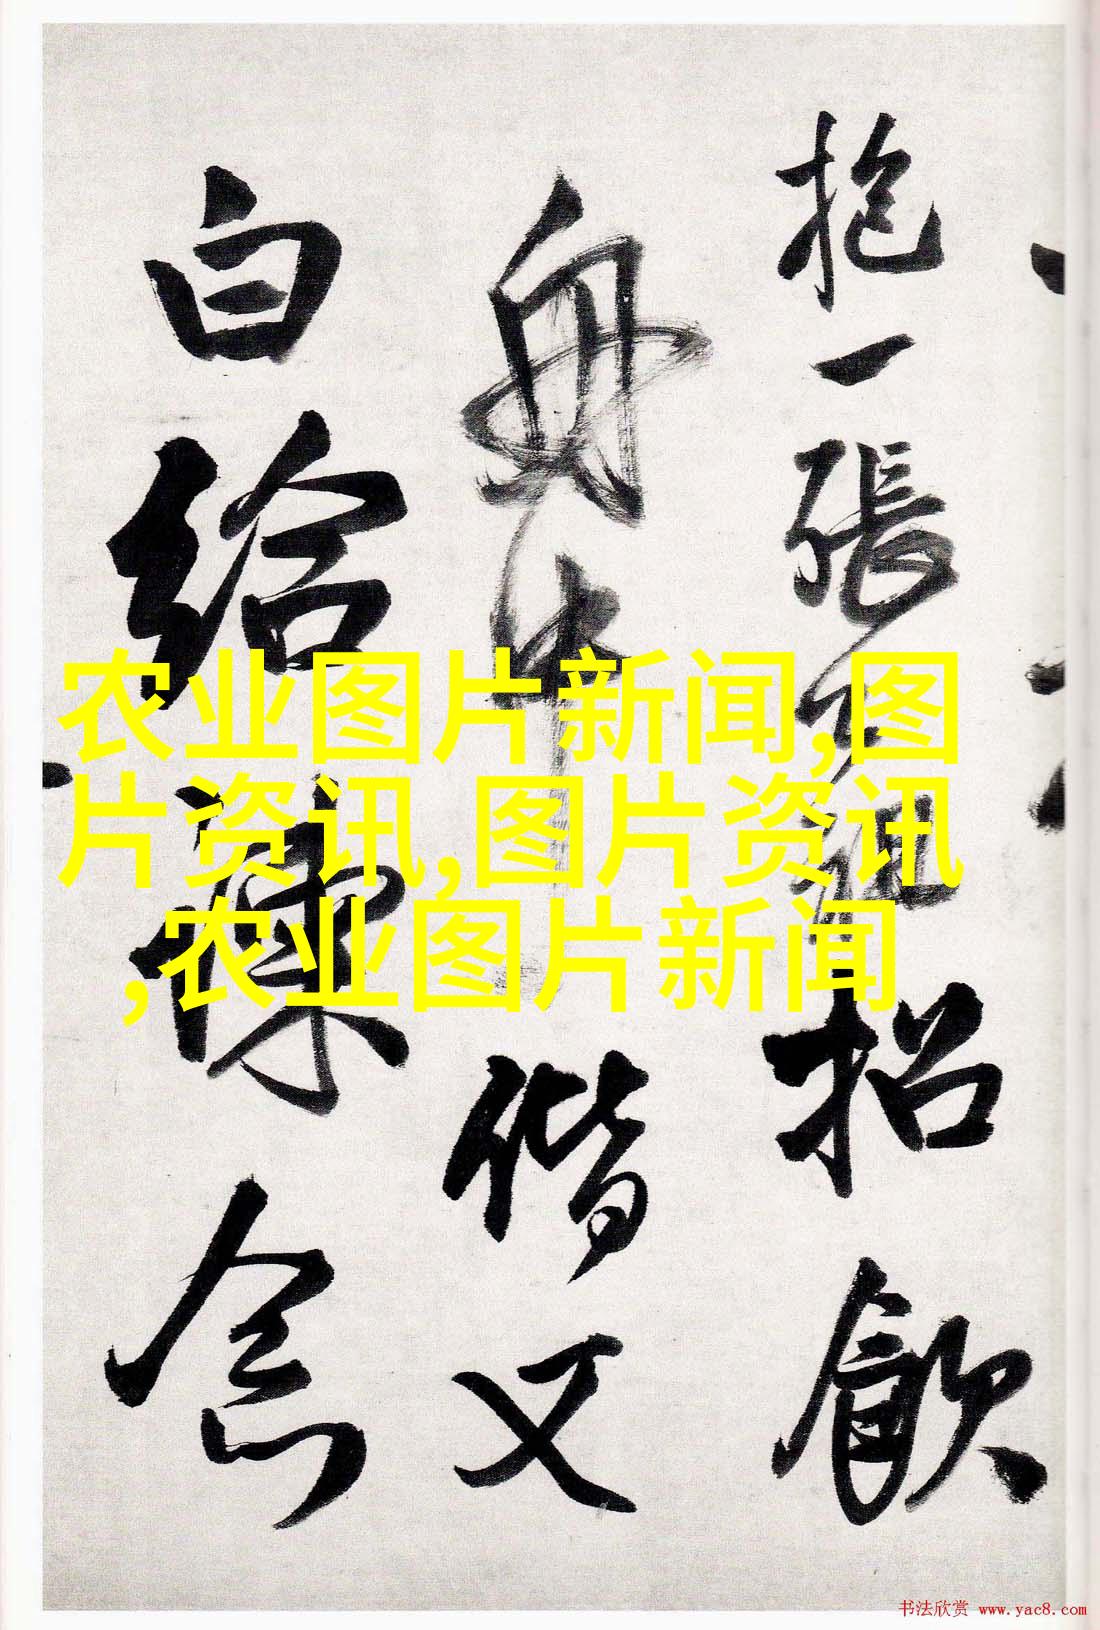 抱一張
招飲
舟中
偕又
白給諫念
农业图片新闻,图
片资讯,图片资讯
,农业图片新闻
书法欣赏 www.yac8.com